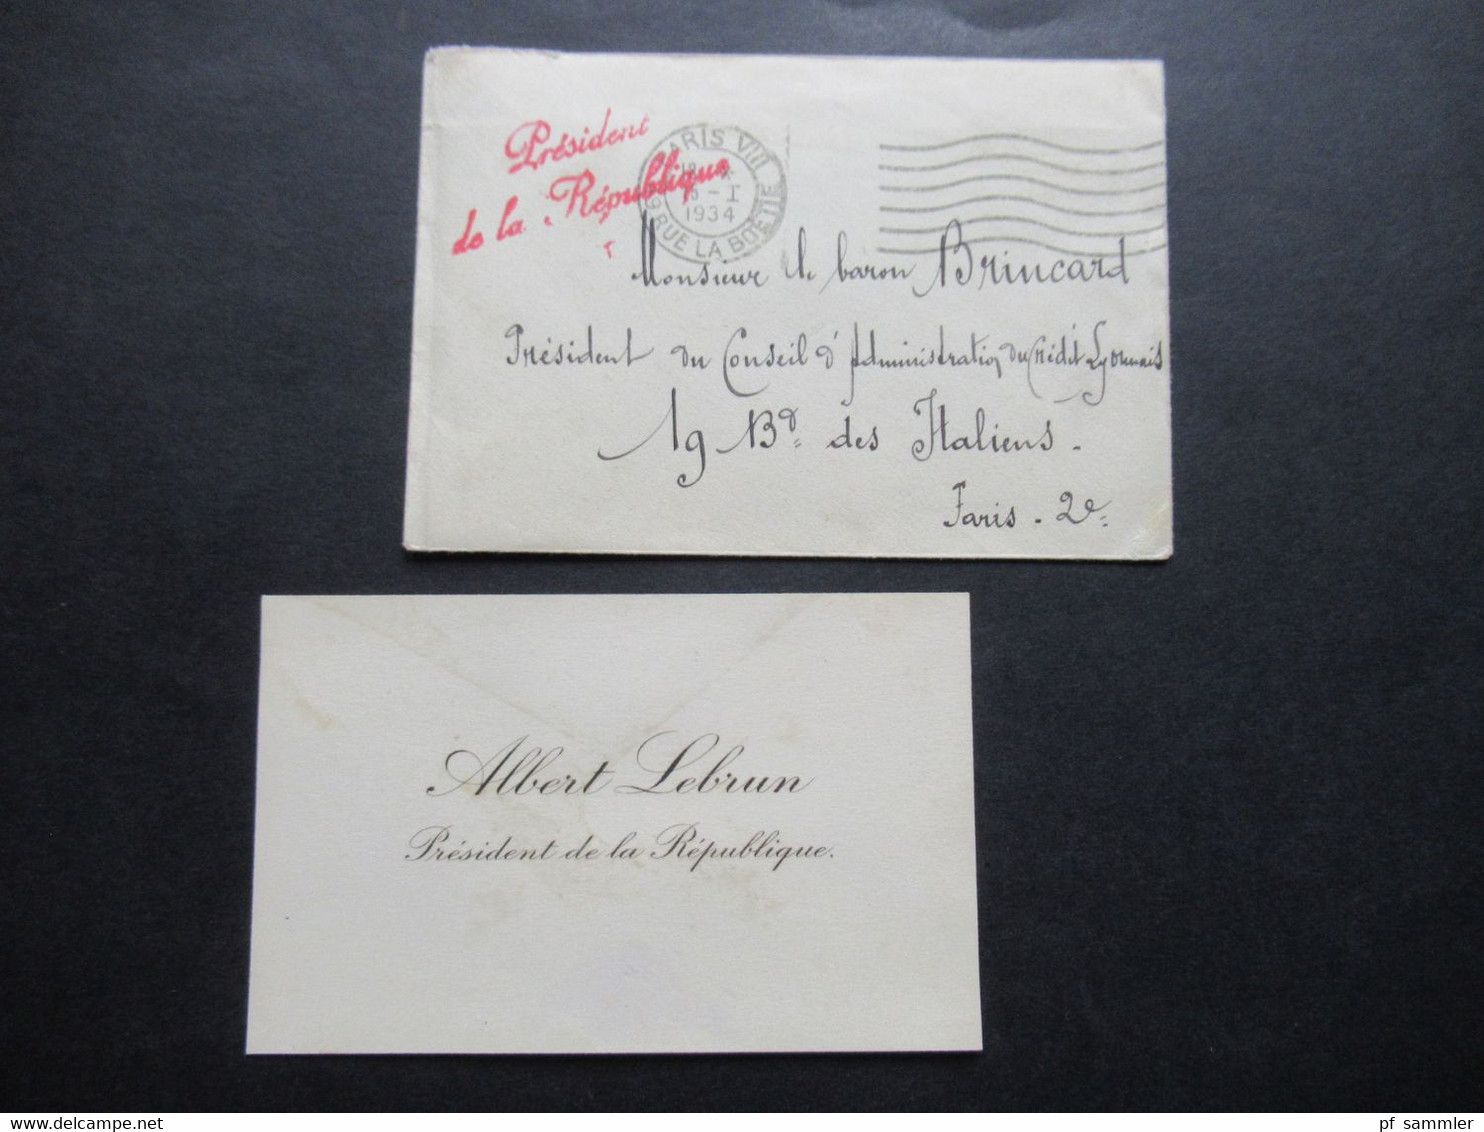 Président
de la République
PARIS VIII
1934
RUE LA BOETIE
Monsieur le baron Brincard
Président du Conseil d'Administration du Crédit Lyonnais
19 Bd. des Italiens.
Paris. 2e.
Albert Lebrun
Président de la République.
pf_sammler